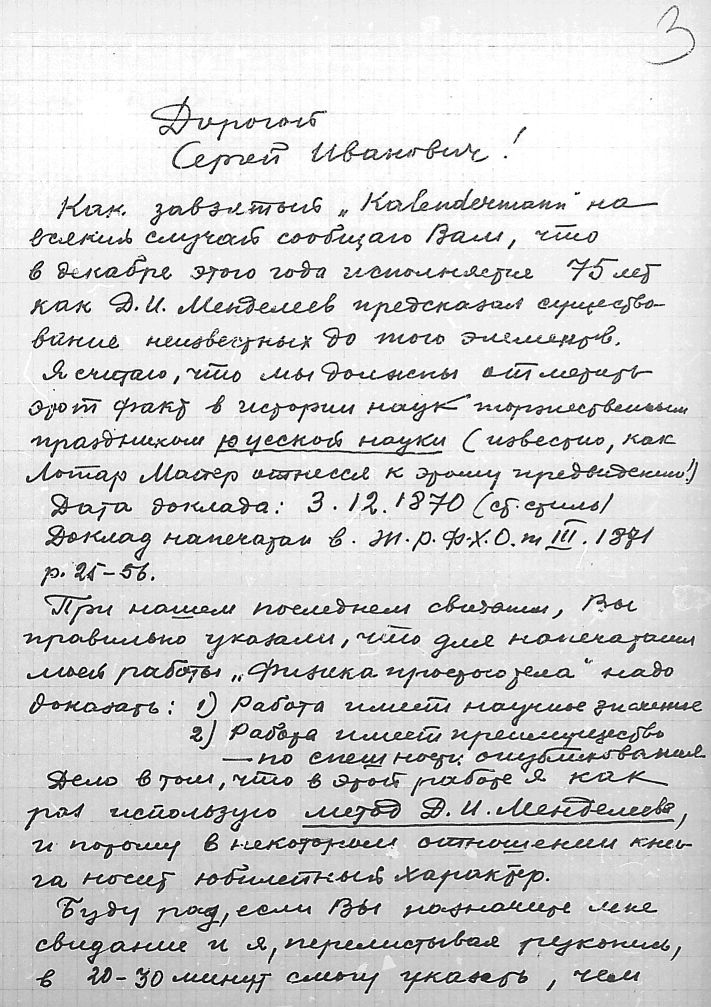 3
Дорогой
Сергей Иванович!
Как завзятый „Kalendermann" на
всякий случай сообщаю Вам, что
в декабре этого года исполняется 75 лет
как Д. И. Менделеев предсказал существо-
вание неизвестных до того элементов.
Я считаю, что мы должны отметить
этот факт в истории наук торжественным
праздником русской науки (известно, как
Лотар Мейер отнесся к этому предвидению!)
Дата доклада: 3.12.1870 (ст. стиль)
Доклад напечатан в. Ж.р.Ф-Х.О. т III. 1871
p. 25-56.
При нашем последнем свидании, Вы
правильно указали, что для напечатания
моей работы „Физика простого тела" надо
доказать: 1) Работа имеет научное значение
2) Работа имеет преимущество
— по спешности опубликования
Дело в том, что в этой работе я как
раз использую метод Д. И. Менделеева,
и потому в некотором отношении кни-
га носит юбилейный характер.
Буду рад, если Вы назначите мне
свидание и я, перелистывая рукопись,
в 20-30 минут смогу указать, чем